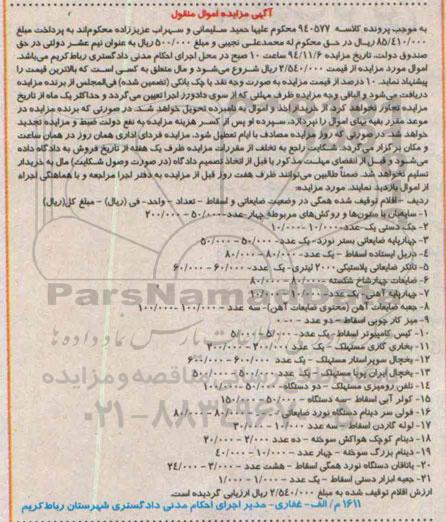 آگهی مزایده اموال منقول
به موجب پرونده کلاسه ۹۴۰۵۷۷ محکوم علیها حمید سلیمانی و سهراب عزیززاده محکوم‌اند به پرداخت مبلغ
۸۵/۴۱۰/۰۰۰ ریال در حق محکوم له محمدعلی نجیبی و مبلغ ۵۰۰/۰۰۰ ریال به عنوان نیم عشر دولتی در حق
صندوق دولت. تاریخ مزایده ۹۴/۱۱/۶ ساعت ۱۰ صبح در محل اجرای احکام مدنی دادگستری رباط کریم می‌باشد.
اموال مورد مزایده از قیمت ۲/۵۴۰/۰۰۰ ریال شروع می‌شود و مال متعلق به کسی است که بالاترین قیمت را
پیشنهاد نماید. ۱۰ درصد از قیمت مزایده به صورت وجه نقد یا چک بانکی (تضمین شده) فی‌المجلس از برنده مزایده
دریافت می‌شود و الباقی وجه مزایده ظرف مهلتی که از سوی دادورز اجرا تعیین می‌گردد و حداکثر یک ماه از تاریخ
مزایده تجاوز نخواهد کرد، از خریدار اخذ و اموال به نامبرده تحویل خواهد شد. در صورتی که برنده مزایده در
موعد مقرر بقیه بهای اموال را نپردازد، سپرده او پس از کسر هزینه مزایده به نفع دولت ضبط و مزایده تجدید
خواهد شد. در صورتی که روز مزایده مصادف با ایام تعطیل شود، مزایده فردای اداری همان روز در همان ساعت
و مکان برگزار می‌گردد. شکایت راجع به تخلف از مقررات مزایده ظرف یک هفته از تاریخ فروش به دادگاه داده
می‌شود و قبل از انقضای مهلت مذکور یا قبل از اتخاذ تصمیم دادگاه (در صورت وصول شکایت) مال به خریدار
تسلیم نخواهد شد. ضمناً طالبین می‌توانند ظرف هفت روز قبل از مزایده به دفتر اجرا مراجعه و با هماهنگی اجراء
از اموال بازدید نمایند. مورد مزایده:
ردیف - اقلام توقیف شده همگی در وضعیت ضایعاتی و اسقاط - تعداد - واحد- فی (ریال) - مبلغ کل(ریال)
۱- سایه‌بان با ستون‌ها و روکش‌های مربوطه چهار عدد- ۵۰/۰۰۰ - ۲۰۰/۰۰۰
۲- جک دستی یک-عدد-۱۰/۰۰۰ -۱۰/۰۰۰
۳- چهارپایه ضایعاتی بستر نورد- یک عدد - ۵۰/۰۰۰ - ۵۰/۰۰۰
۴- دریل ایستاده اسقاط - یک عدد- ۸۰/۰۰۰ - ۸۰/۰۰۰
۵- تانکر ضایعاتی پلاستیکی ۲۰۰۰ لیتری- یک عدد- ۶۰/۰۰۰ - ۶۰/۰۰۰
۶- ضایعات چهارشاخ شکسته - ۸۰/۰۰۰ - ۸۰/۰۰۰
۷- چهارپایه آهنی- یک عدد - ۱۰/۰۰۰ - ۱۰/۰۰۰
۸- جعبه ضایعات آهن (محتوی ضایعات آهن)- سه عدد - ۱۰۰/۰۰۰ - ۱۰۰/۰۰۰
۹- میز کار چوبی اسقاط - دو عدد
۱۰- کیس کامپیوتر اسقاط - یک عدد- ۵/۰۰۰ - ۵/۰۰۰
۱۱- بخاری گازی مستهلک - یک عدد - ۲۰۰/۰۰۰ - ۲۰۰/۰۰۰
۱۲- یخچال سوپراستار مستهلک - یک عدد - ۶۰۰/۰۰۰ - ۶۰۰/۰۰۰
۱۳- یخچال ایران پویا مستهلک - یک عدد - ۵۰۰/۰۰۰ - ۵۰۰/۰۰۰
۱۴- تلفن رومیزی مستهلک - دو دستگاه- ۵۰/۰۰۰ -۱۰۰/۰۰۰
۱۵- کولر آبی اسقاط -سه دستگاه - ۵۰/۰۰۰ - ۱۵۰/۰۰۰
۱۶- قوطی سر دینام دستگاه نورد ضایعاتی - ۸۰/۰۰۰ - ۸۰/۰۰۰
۱۷- لوله گازدن اسقاط - سه عدد - ۱۰/۰۰۰ - ۳۰/۰۰۰
۱۸- دینام کوچک هواکش سوخته - ده عدد - ۲/۰۰۰ - ۲۰/۰۰۰
۱۹- دینام بزرگ سوخته - چهار عدد - ۱۰/۰۰۰ - ۴۰/۰۰۰
۲۰- یاتاقان دستگاه نورد همگی اسقاط - هشت عدد - ۳/۰۰۰ - ۲۴/۰۰۰
۲۱- جعبه ابزار دستی اسقاط - یک عدد - ۱/۰۰۰ - ۱/۰۰۰
ارزش اقلام توقیف شده به مبلغ ۲/۵۴۰/۰۰۰ ریال ارزیابی گردیده است.
۱۶۱۱ م/ الف- غفاری- مدیر اجرای احکام مدنی دادگستری شهرستان رباط کریم
ParsNamad
۰۲۱-۸۸۳۴۹